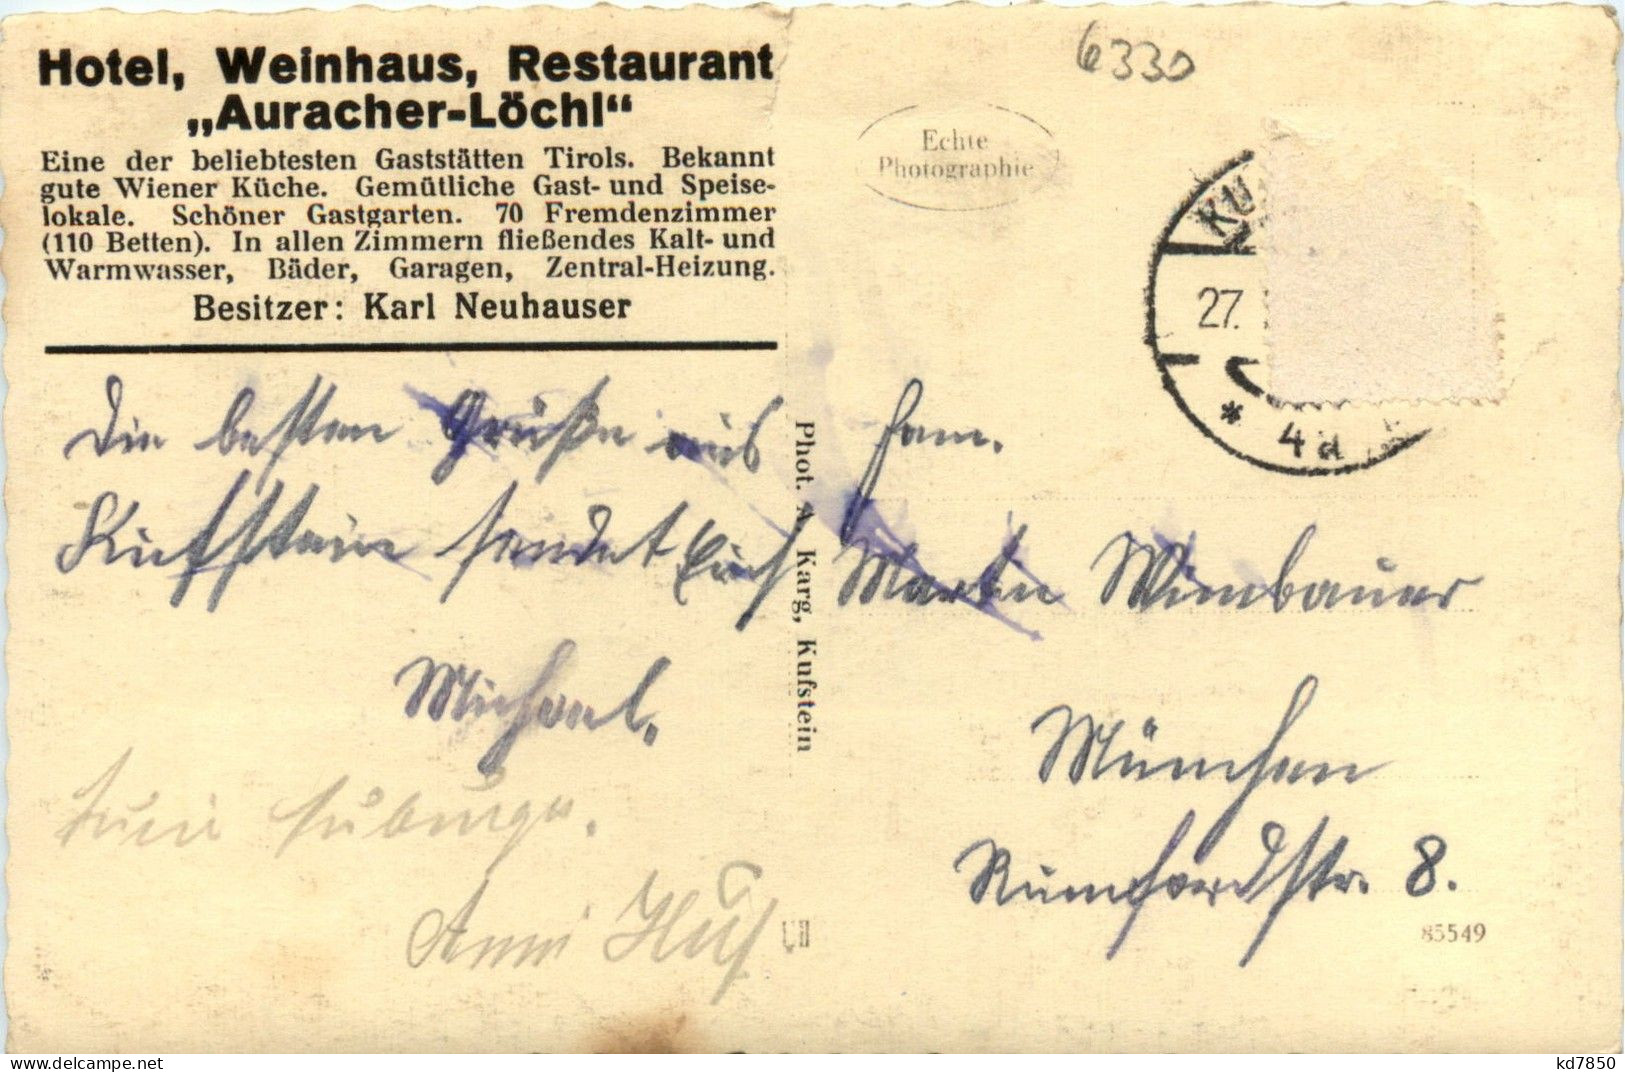 Hotel, Weinhaus, Restaurant
„Auracher-Löchl“
Eine der beliebtesten Gaststätten Tirols. Bekannt
gute Wiener Küche. Gemütliche Gast- und Speise-
lokale. Schöner Gastgarten. 70 Fremdenzimmer
(110 Betten). In allen Zimmern fließendes Kalt- und
Warmwasser, Bäder, Garagen, Zentral-Heizung.
Besitzer: Karl Neuhauser
Die besten Grüße aus
Kufstein sendet Euch
Michael.
Anni
Phot. A. Karg, Kufstein
6330
Echte
Photographie
KU
27.
* 4d
Fam.
Martin Wimbauer
München
Rumfordstr. 8.
85549
kd7850